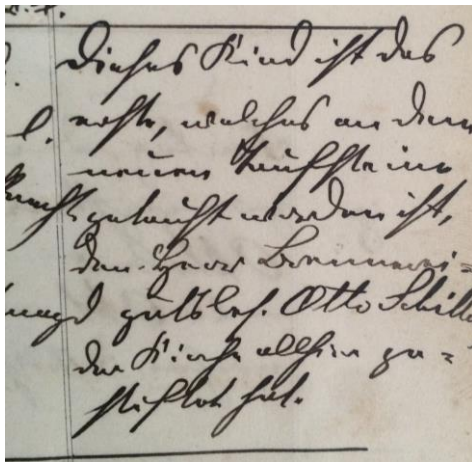 Dieses Kind ist das
erste, welches an dem
neuen Taufsteine
getauft worden ist,
den Herr Brennerei=
gutsbes. Otto Schille
der Kirche allhier ge=
stiftet hat.